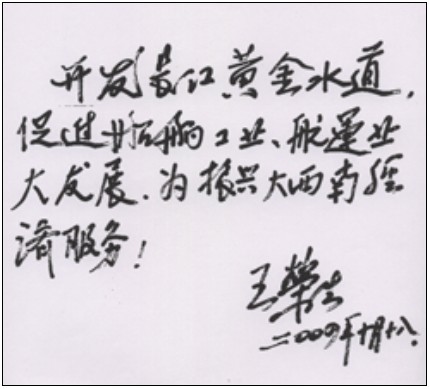 开发长江黄金水道，
促进船舶工业、航运业
大发展，为振兴大西南经
济服务！
王荣生
二〇〇九年十月十八